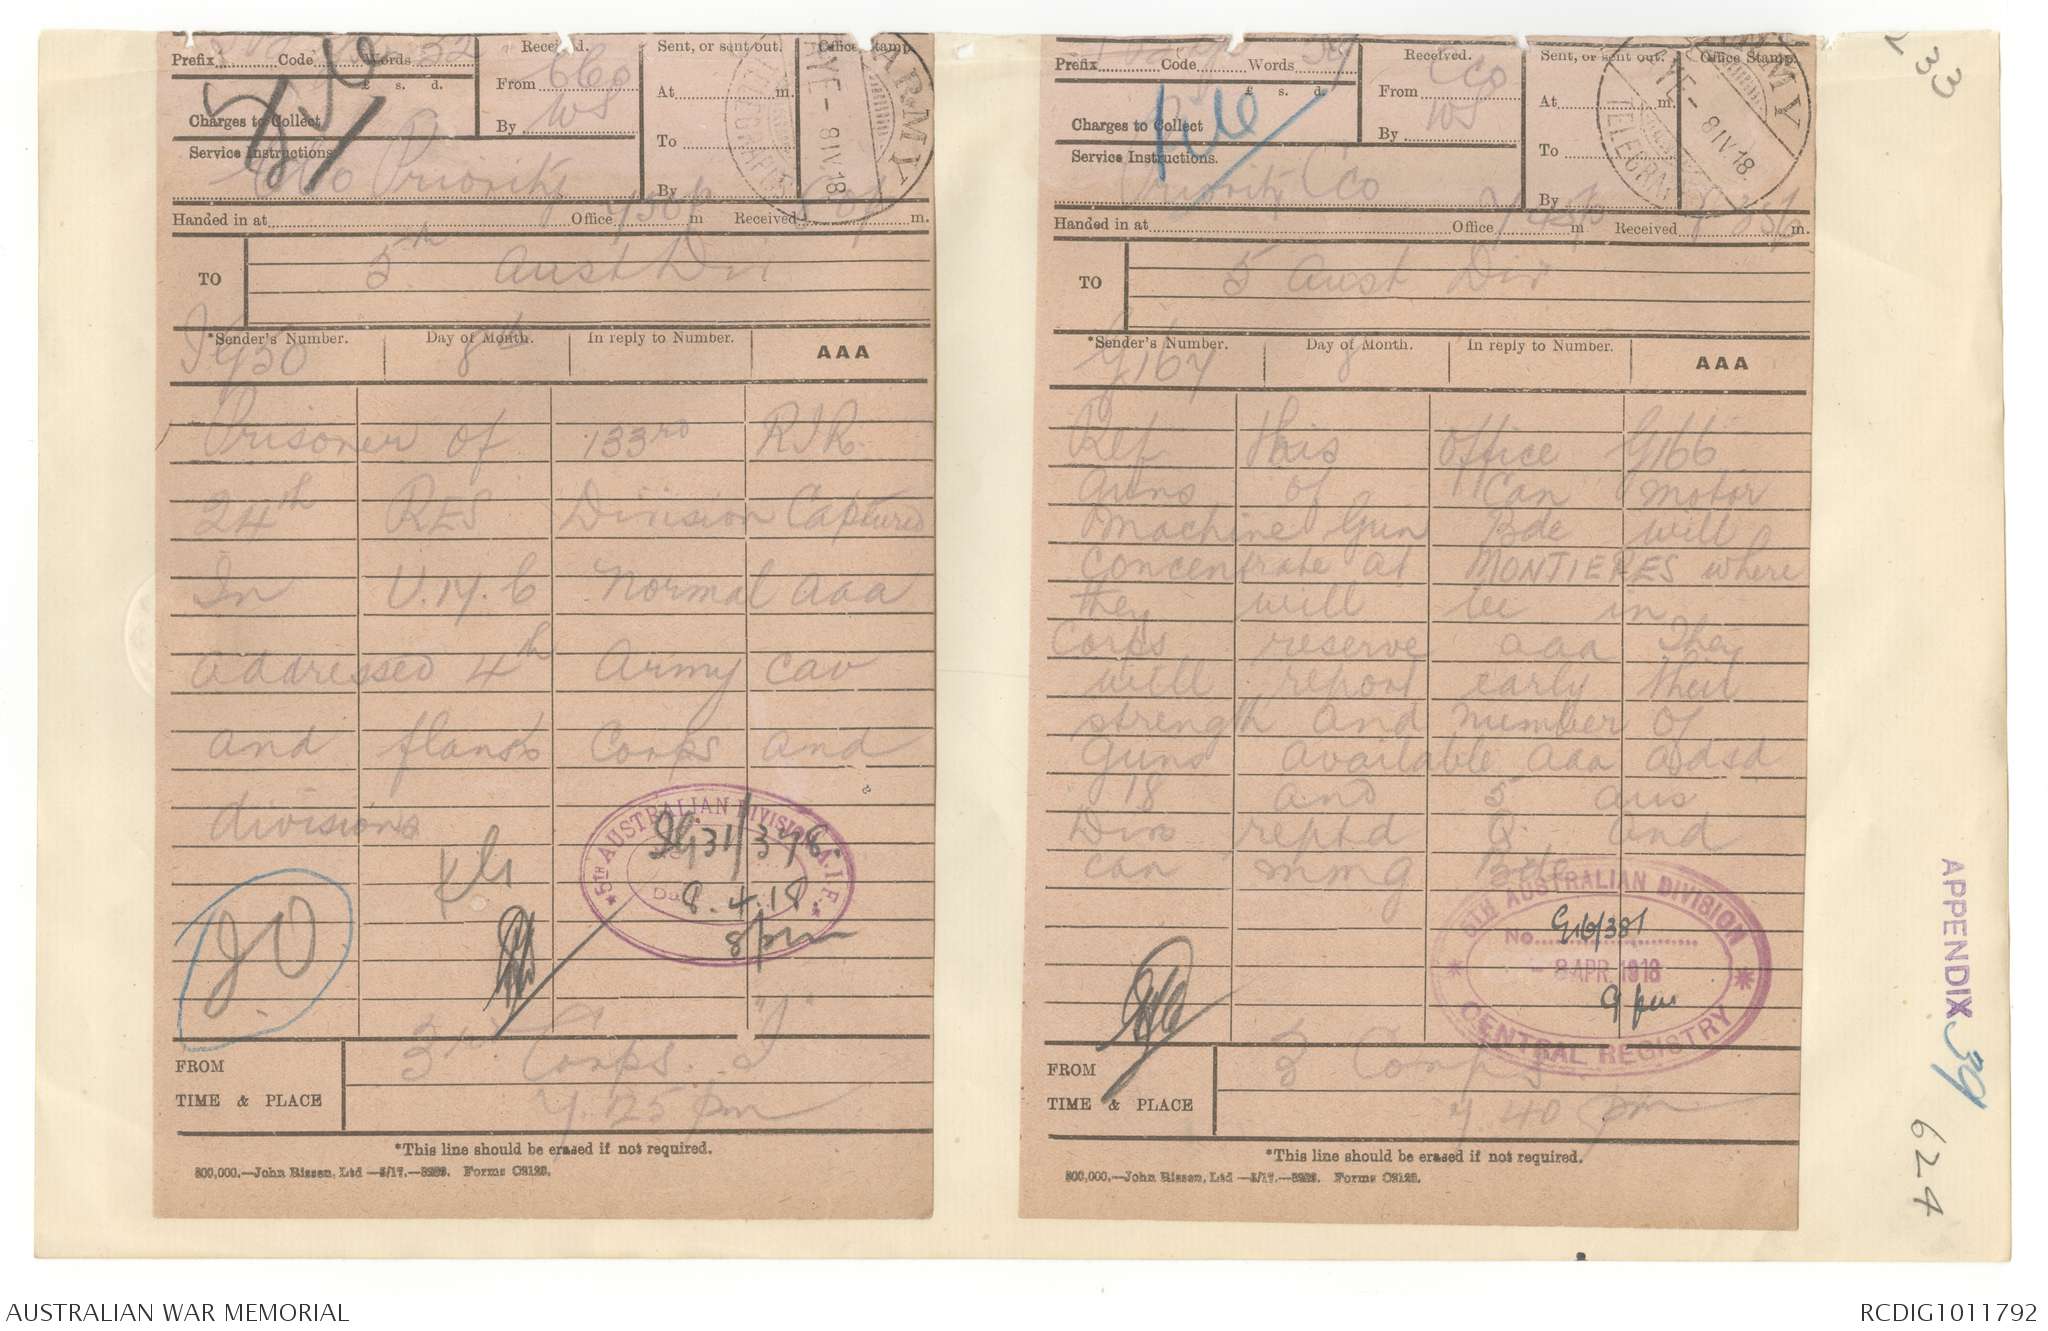 Prefix Code Words 32
£ s. d.
Charges to Collect
Service Instructions.
Priority
Received.
From CCO
By WS
Sent, or sent out.
At m.
To
By
Office Stamp.
ARMY TELEGRAPHS
YE - 8 IV 18
Handed in at Office 7 30 p m Received m.
TO 5th Aust Div
*Sender's Number. Day of Month. In reply to Number. AAA
IG50 8th
Prisoner of 133rd RIR
24th RES Division Captured
In U.14.b normal aaa
addressed 4th Army cav
and flank Corps and
divisions
5TH AUSTRALIAN DIVISION A.I.F.
IG31/378.
8.4.18
8 pm
JO
FROM 3rd Corps. "I"
TIME & PLACE 7.25 pm
*This line should be erased if not required.
Prefix Code Words
£ s. d.
Charges to Collect
Service Instructions.
Priority CCO
Received.
From CCO
By WS
Sent, or sent out.
At m.
To
By
Office Stamp.
ARMY TELEGRAPHS
YE - 8 IV 18.
Handed in at Office 7 45p m Received 8 35p m.
TO 5 Aust Div
*Sender's Number. Day of Month. In reply to Number. AAA
G167 8
Ref this office G166
guns of Can motor
Machine Gun Bde will
concentrate at MONTIERES where
they will be in
Corps reserve aaa They
will report early their
strength and number of
guns available aaa adsd
18 and 5 aus
Divs reptd Q and
can mmg Bde
5TH AUSTRALIAN DIVISION
No. G16/381
- 8 APR 1918
9 pm
CENTRAL REGISTRY
FROM 3 Corps
TIME & PLACE 7.40 pm
*This line should be erased if not required.
APPENDIX 39
624
AUSTRALIAN WAR MEMORIAL
RCDIG1011792